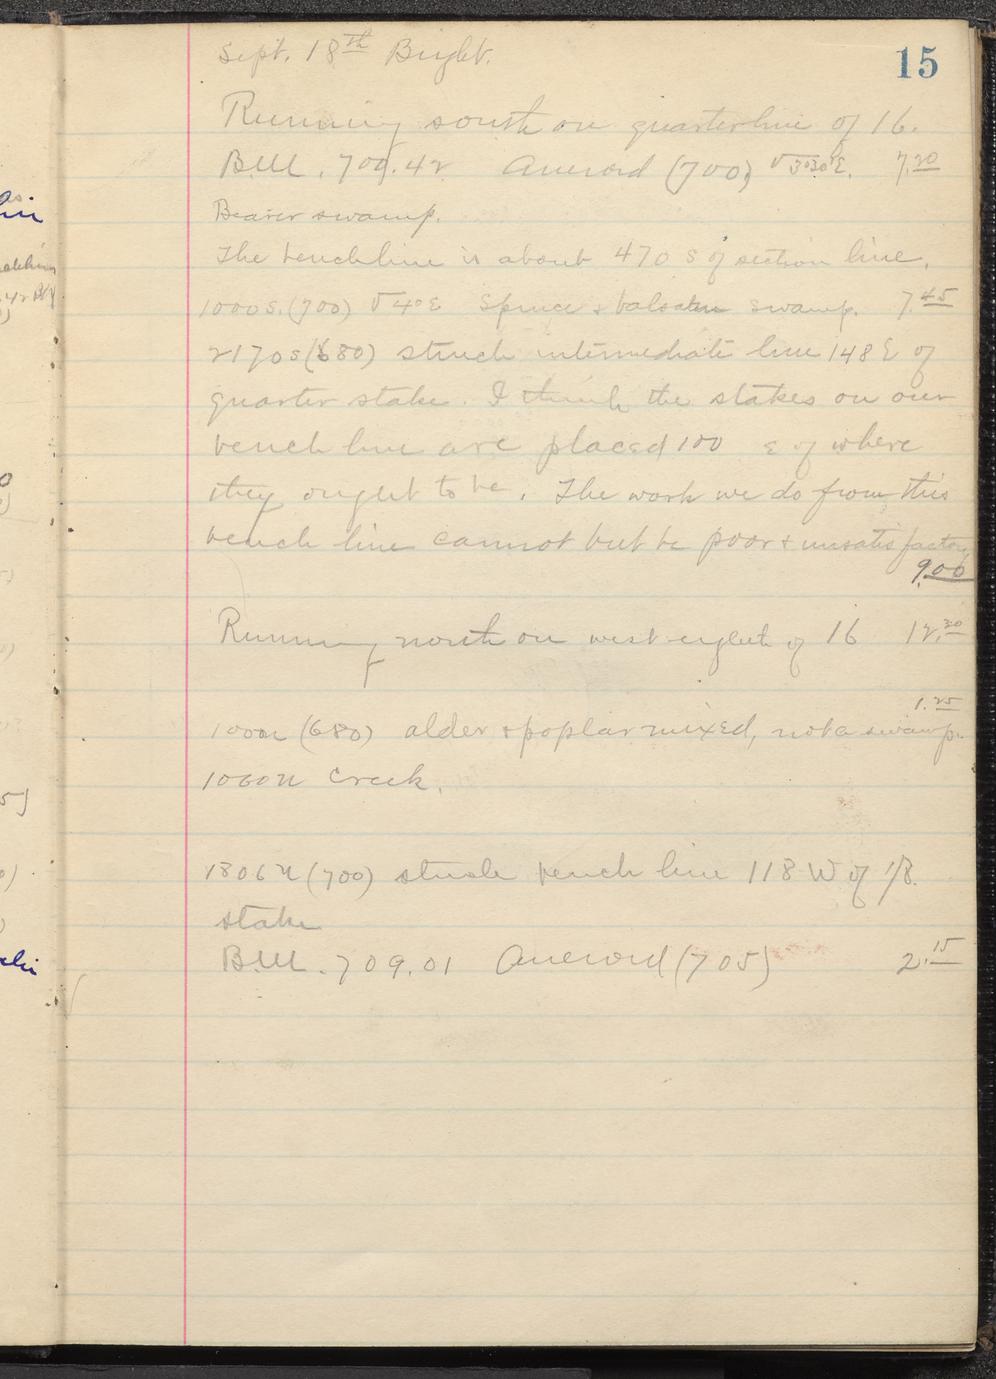 15
Sept. 18th Bright.
Running south on quarterline of 16.
B.M. 709.42 Aneroid (700) V3°30'E. 7.20
Beaver swamp.
The benchline is about 470 S of section line.
1000 S. (700) V4°E Spruce & balsam swamp. 7.45
2170 S (680) struck intermediate line 148 E of
quarter stake. I think the stakes on our
bench line are placed 100 E of where
they ought to be. The work we do from this
bench line cannot but be poor & unsatisfactory
9.00
Running north on west eighth of 16 12.30
1.25
1000 N (680) alder & poplar mixed, not a swamp.
1060 N Creek.
1806 N (700) struck bench line 118 W of 1/8
stake
B.M. 709.01 Aneroid (705) 2.15